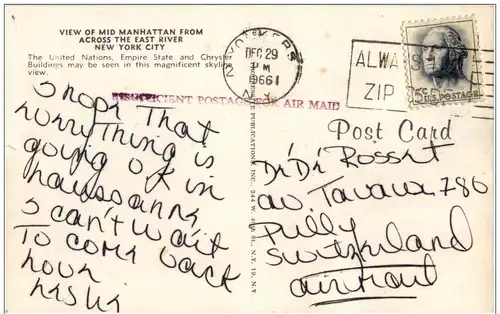 VIEW OF MID MANHATTAN FROM
ACROSS THE EAST RIVER
NEW YORK CITY
The United Nations, Empire State and Chrysler
Buildings may be seen in this magnificent skyline
view.
YONKERS
DEC 29
PM
1966
N.Y.
2
ALWAYS
ZIP
5c U.S. POSTAGE
INSUFFICIENT POSTAGE FOR AIR MAIL
Post Card
I hope That
everything is
going ok in
I can't wait
To come back
Di Di Rosset
av. Tavaux 786
Pully
Switzerland
airmail